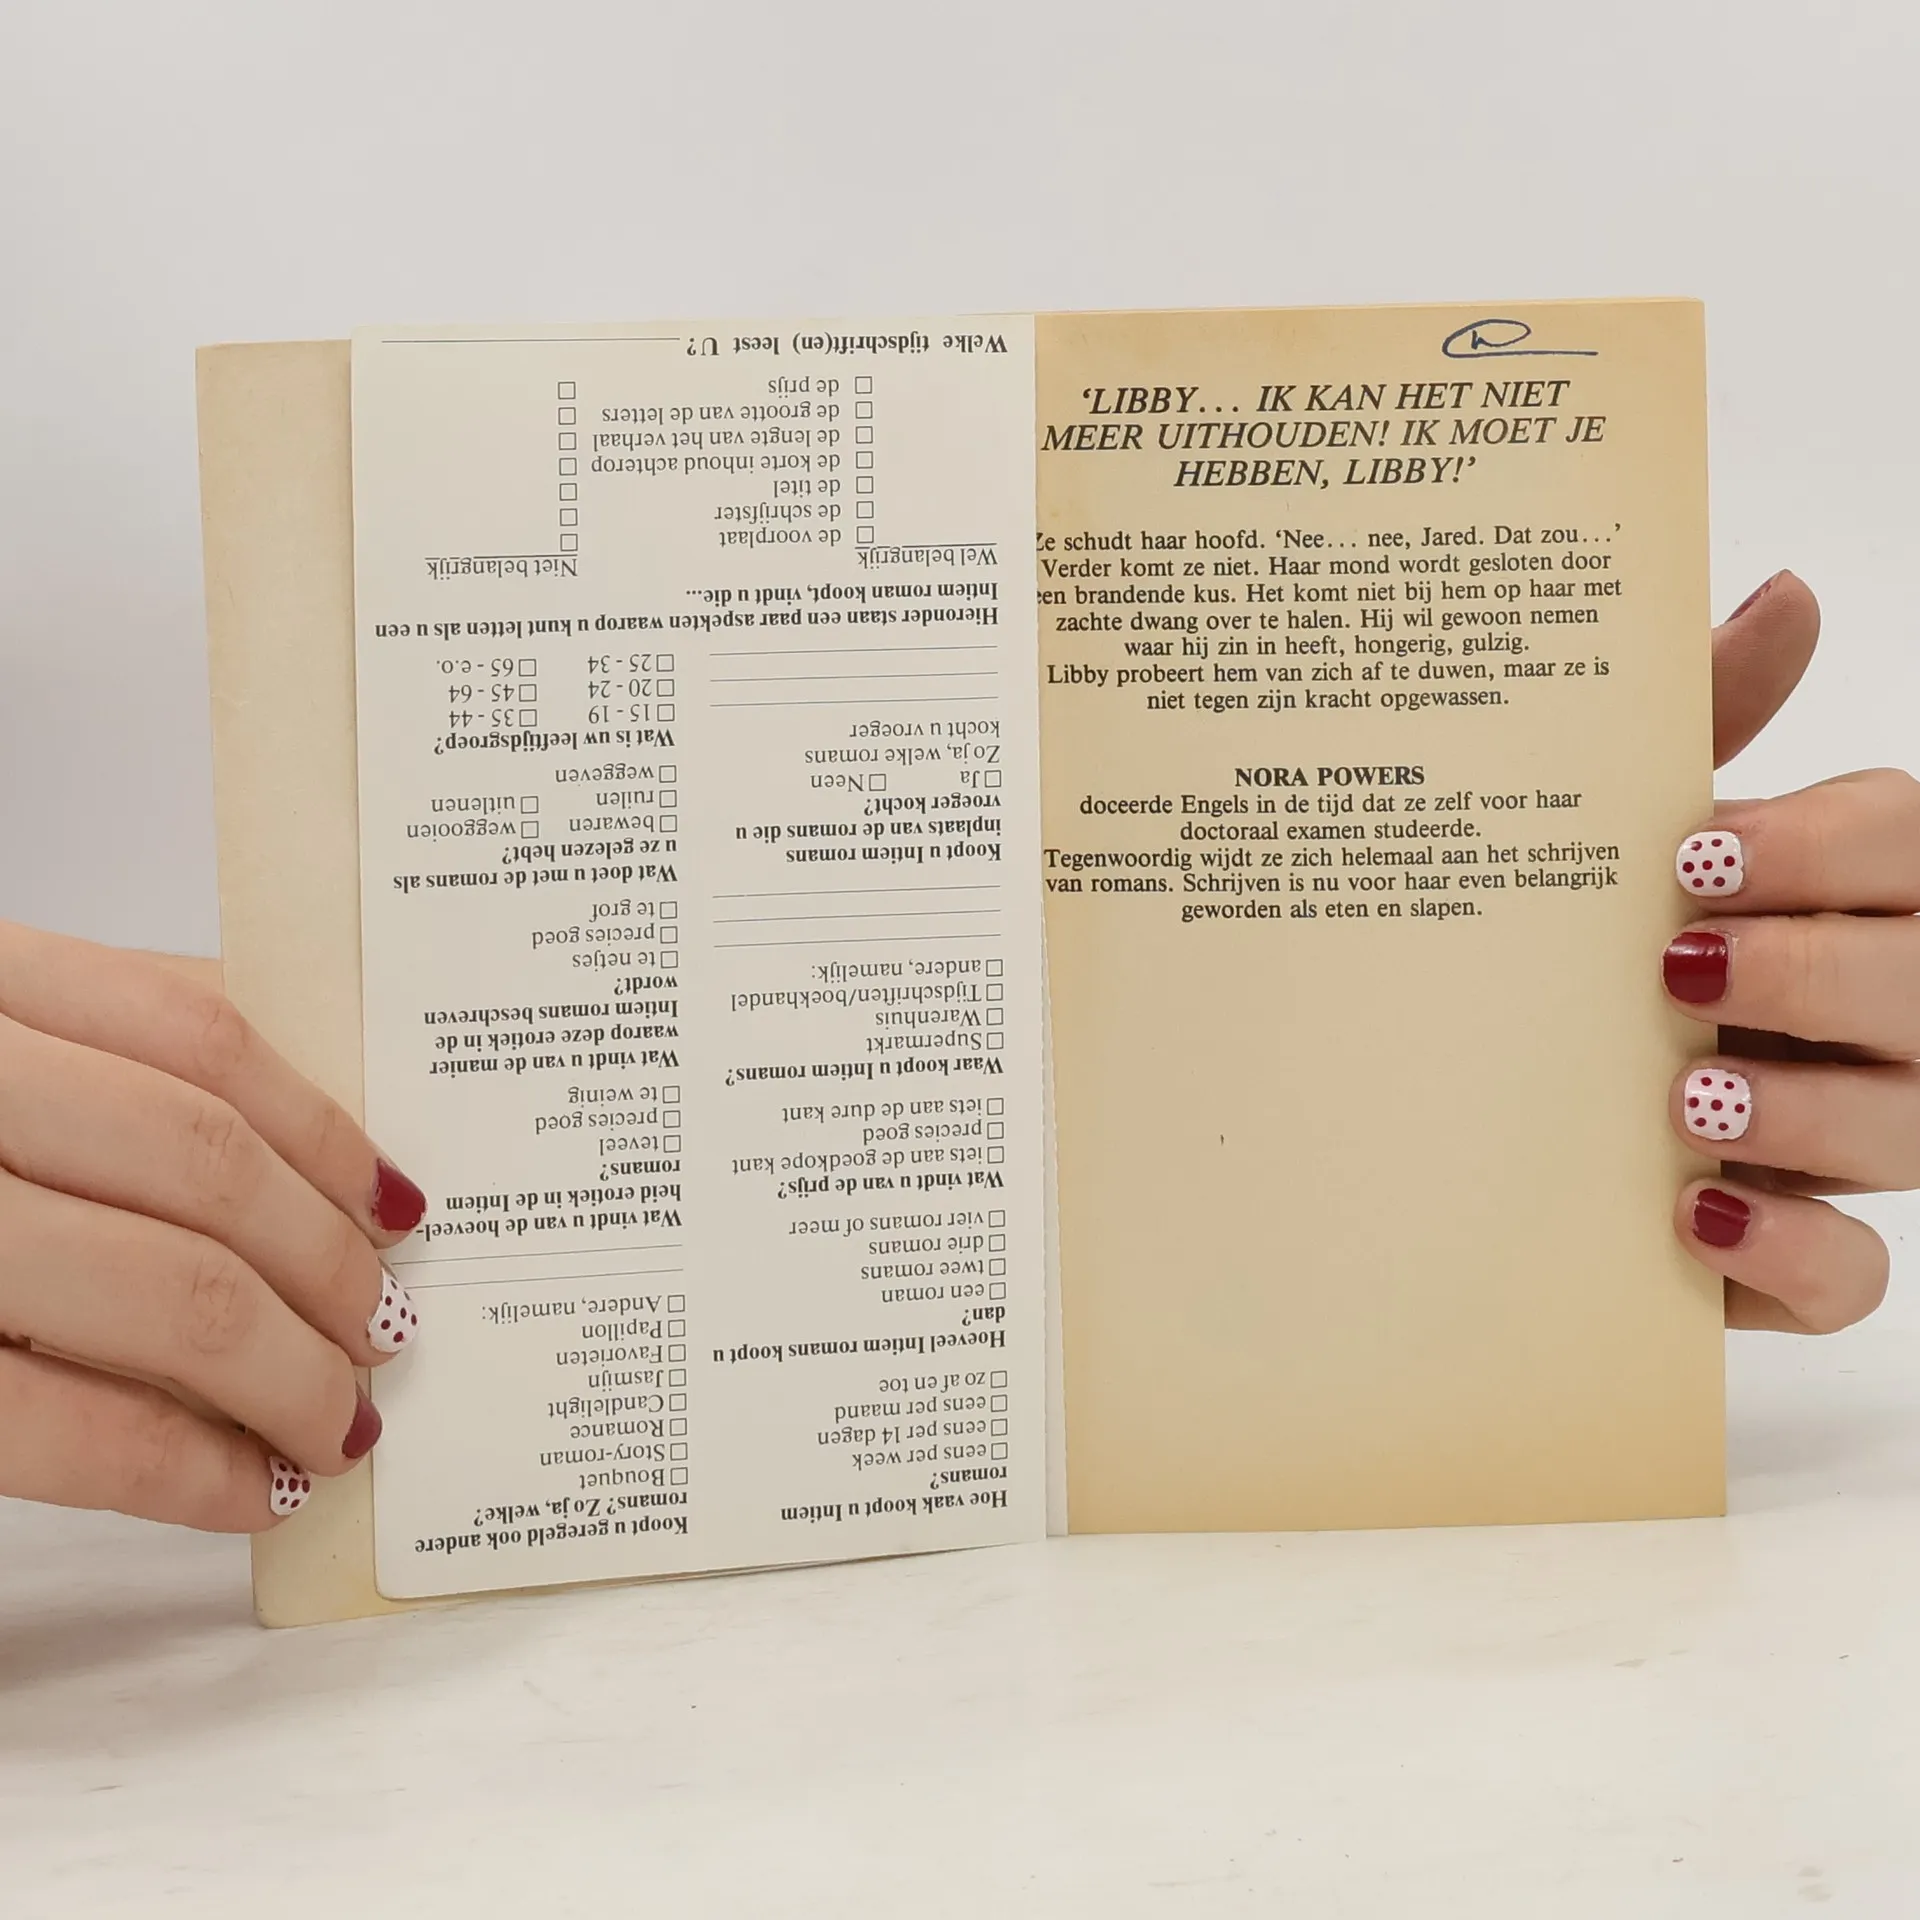 Hoe vaak koopt u Intiem
romans?
eens per week
eens per 14 dagen
eens per maand
zo af en toe
Hoeveel Intiem romans koopt u
dan?
een roman
twee romans
drie romans
vier romans of meer
Wat vindt u van de prijs?
iets aan de goedkope kant
precies goed
iets aan de dure kant
Waar koopt u Intiem romans?
Supermarkt
Warenhuis
Tijdschriften/boekhandel
andere, namelijk:
Koopt u Intiem romans
inplaats van de romans die u
vroeger kocht?
Ja Neen
Zo ja, welke romans
kocht u vroeger
Koopt u geregeld ook andere
romans? Zo ja, welke?
Bouquet
Story-roman
Romance
Candlelight
Jasmijn
Favorieten
Papillon
Andere, namelijk:
Wat vindt u van de hoeveel-
heid erotiek in de Intiem
romans?
teveel
precies goed
te weinig
Wat vindt u van de manier
waarop deze erotiek in de
Intiem romans beschreven
wordt?
te netjes
precies goed
te grof
Wat doet u met de romans als
u ze gelezen hebt?
bewaren weggooien
ruilen uitlenen
weggeven
Wat is uw leeftijdsgroep?
15 - 19 35 - 44
20 - 24 45 - 64
25 - 34 65 - e.o.
Hieronder staan een paar aspekten waarop u kunt letten als u een
Intiem roman koopt, vindt u die...
Wel belangrijk Niet belangrijk
de voorplaat
de schrijfster
de titel
de korte inhoud achterop
de lengte van het verhaal
de grootte van de letters
de prijs
Welke tijdschrift(en) leest U?
‘LIBBY... IK KAN HET NIET
MEER UITHOUDEN! IK MOET JE
HEBBEN, LIBBY!’
Ze schudt haar hoofd. ‘Nee... nee, Jared. Dat zou...’
Verder komt ze niet. Haar mond wordt gesloten door
een brandende kus. Het komt niet bij hem op haar met
zachte dwang over te halen. Hij wil gewoon nemen
waar hij zin in heeft, hongerig, gulzig.
Libby probeert hem van zich af te duwen, maar ze is
niet tegen zijn kracht opgewassen.
NORA POWERS
doceerde Engels in de tijd dat ze zelf voor haar
doctoraal examen studeerde.
Tegenwoordig wijdt ze zich helemaal aan het schrijven
van romans. Schrijven is nu voor haar even belangrijk
geworden als eten en slapen.